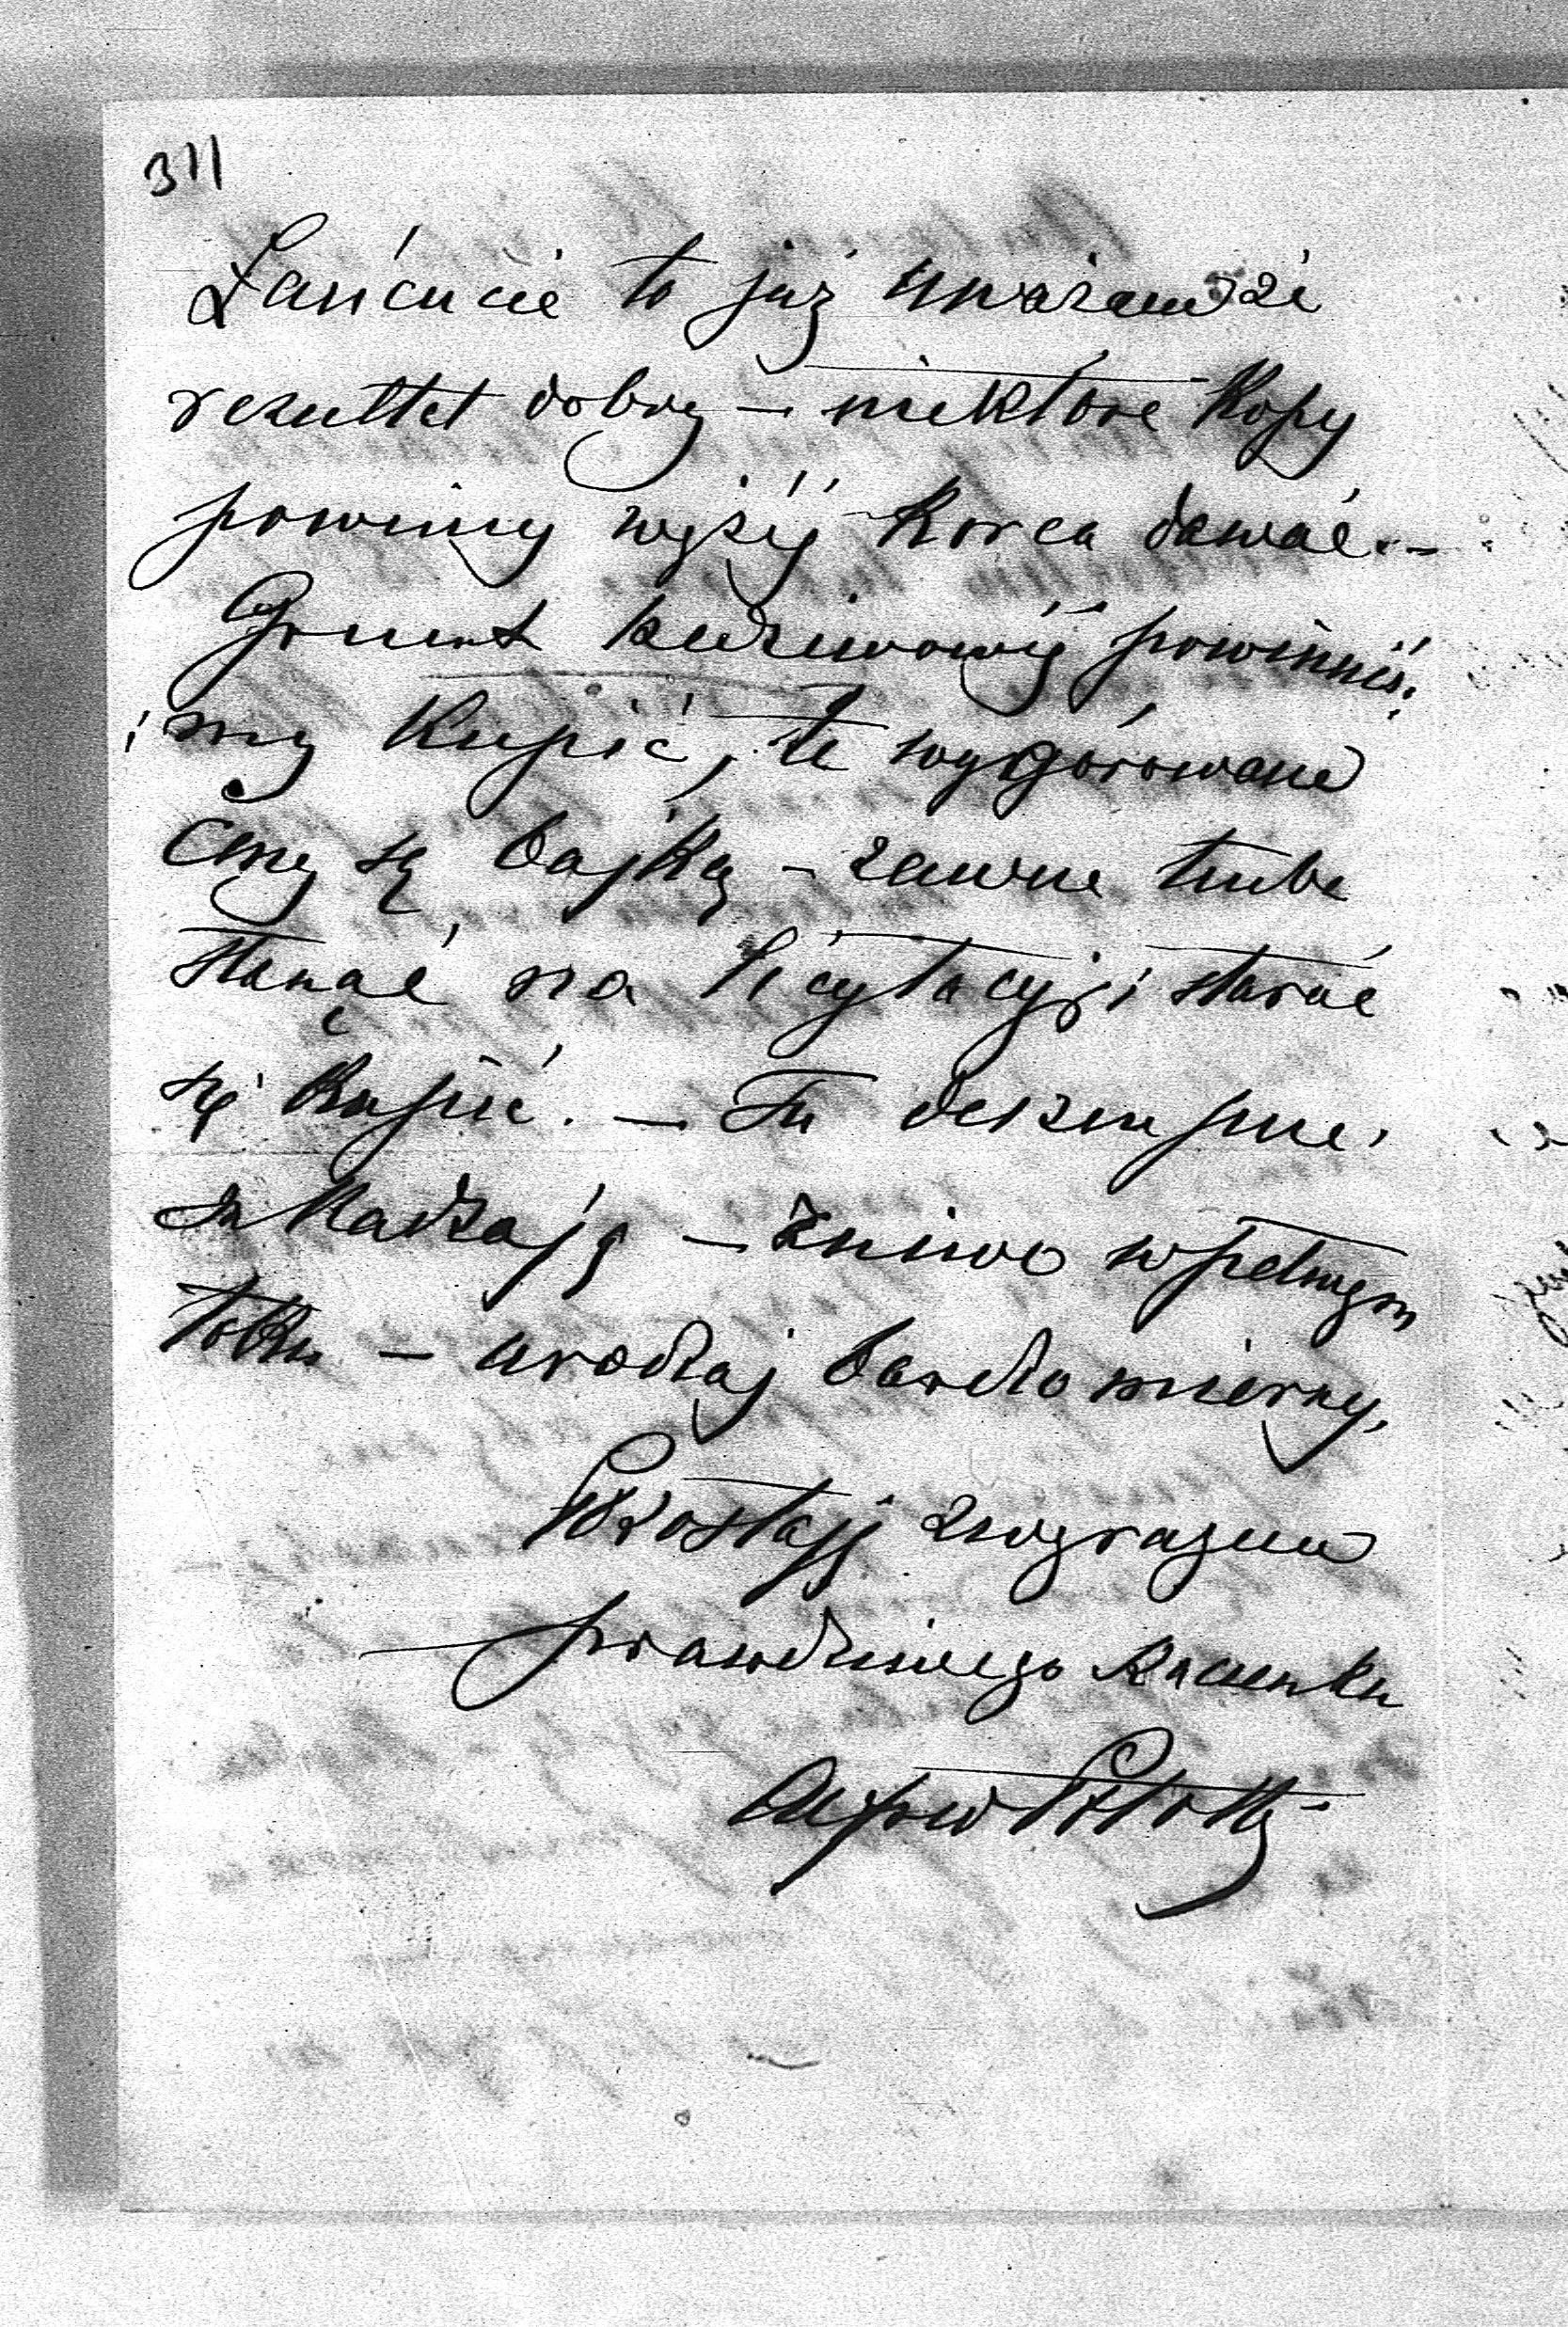 311
Łańcucie to już uważam że
rezultet dobry – niektóre Kopy
powinny wyżéj Korca dawać. –
Grunt powinniś
my Kupić, te wygórowane
Ceny są bajką – zawsze trzeba
stanąć na licytacyji starać
się Kupić. – Tu deszcze
żniwo w pełnym
toku – urodzaj bardzo mierny,
Pozostaję z wyrazem
prawdziwego szacunku
Alfred Potocki